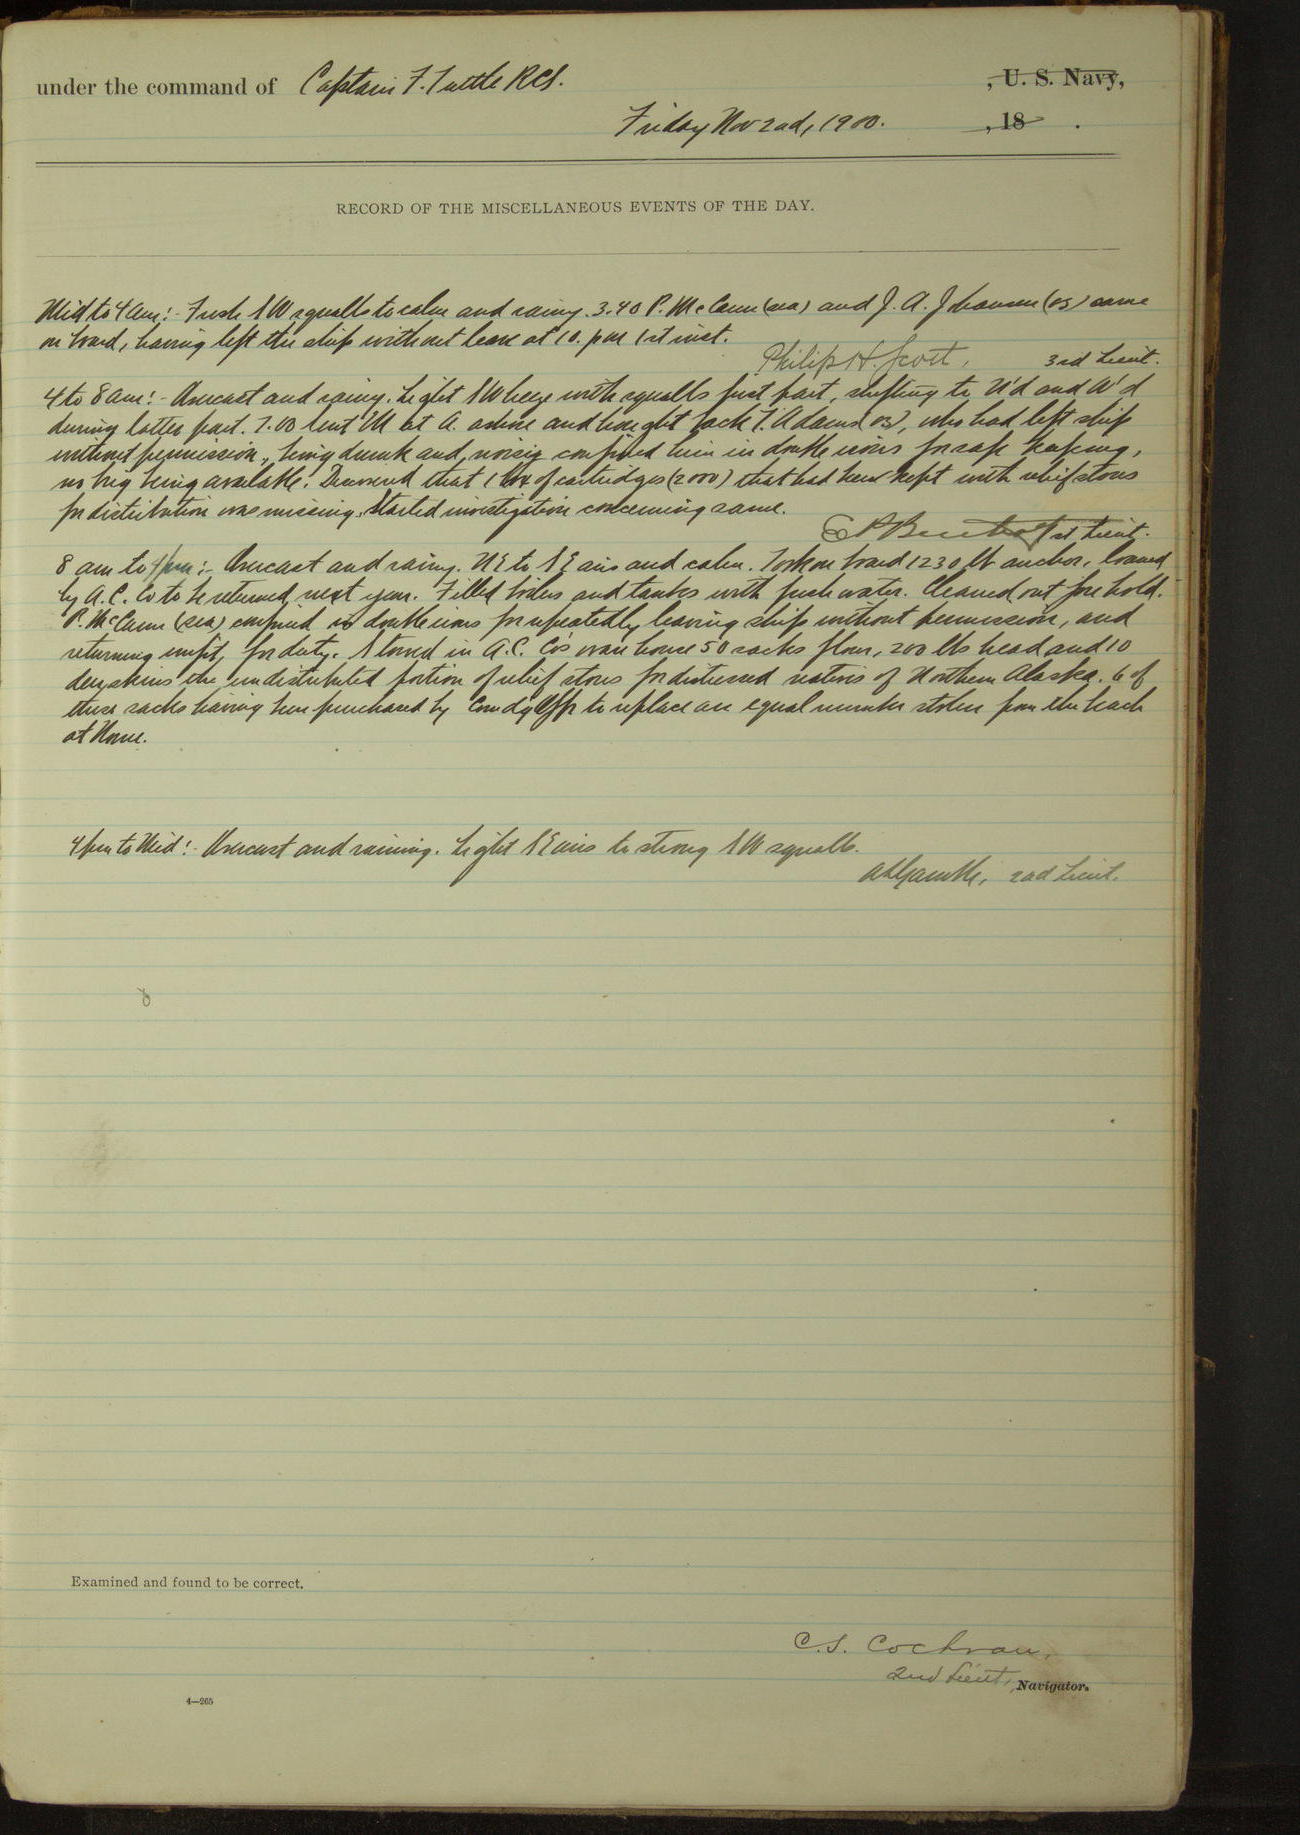 under the command of Captain F. Tuttle RCS. , U. S. Navy,
Friday Nov 2nd, 1900. , 18 .
RECORD OF THE MISCELLANEOUS EVENTS OF THE DAY.
Mid to 4 am:- Fresh SW squalls to calm and rainy. 3.40 P. McCann (sea) and J. A. Johansen (os) came
on board, having left the ship without leave at 10. pm 1st inst.
Philip H. Scott, 3rd Lieut.
4 to 8 am:- Overcast and rainy. Light SW breeze with squalls first part, shifting to N'd and W'd
during latter part. 7.00 sent M at A. ashore and brought back F. Adams (os), who had left ship
without permission, being drunk and noisy confined him in double irons for safe keeping,
no brig being available. Discovered that 1 box of cartridges (2000) that had been kept with relief stores
for distribution was missing. Started investigation concerning same.
1st Lieut.
8 am to 4 pm:- Overcast and rainy. NE to SE airs and calm. Took on board 1230 lb anchor, loaned
by A. C. Co to be returned next year. Filled boilers and tanks with fresh water. Cleaned out fore hold.
P. McCann (sea) confined in double irons for repeatedly leaving ship without permission, and
returning unfit for duty. Stored in A.C. Co's ware house 50 sacks flour, 200 lbs bead and 10
deerskins the undistributed portion of relief stores for distressed natives of Northern Alaska. 6 of
these sacks having been purchased by Comdg Offr to replace an equal number stolen from the beach
at Nome.
4 pm to Mid:- Overcast and raining. Light SE airs to strong SW squalls.
A L Gamble, 2nd Lieut.
Examined and found to be correct.
C. S. Cochran,
2nd Lieut, Navigator.
4—265